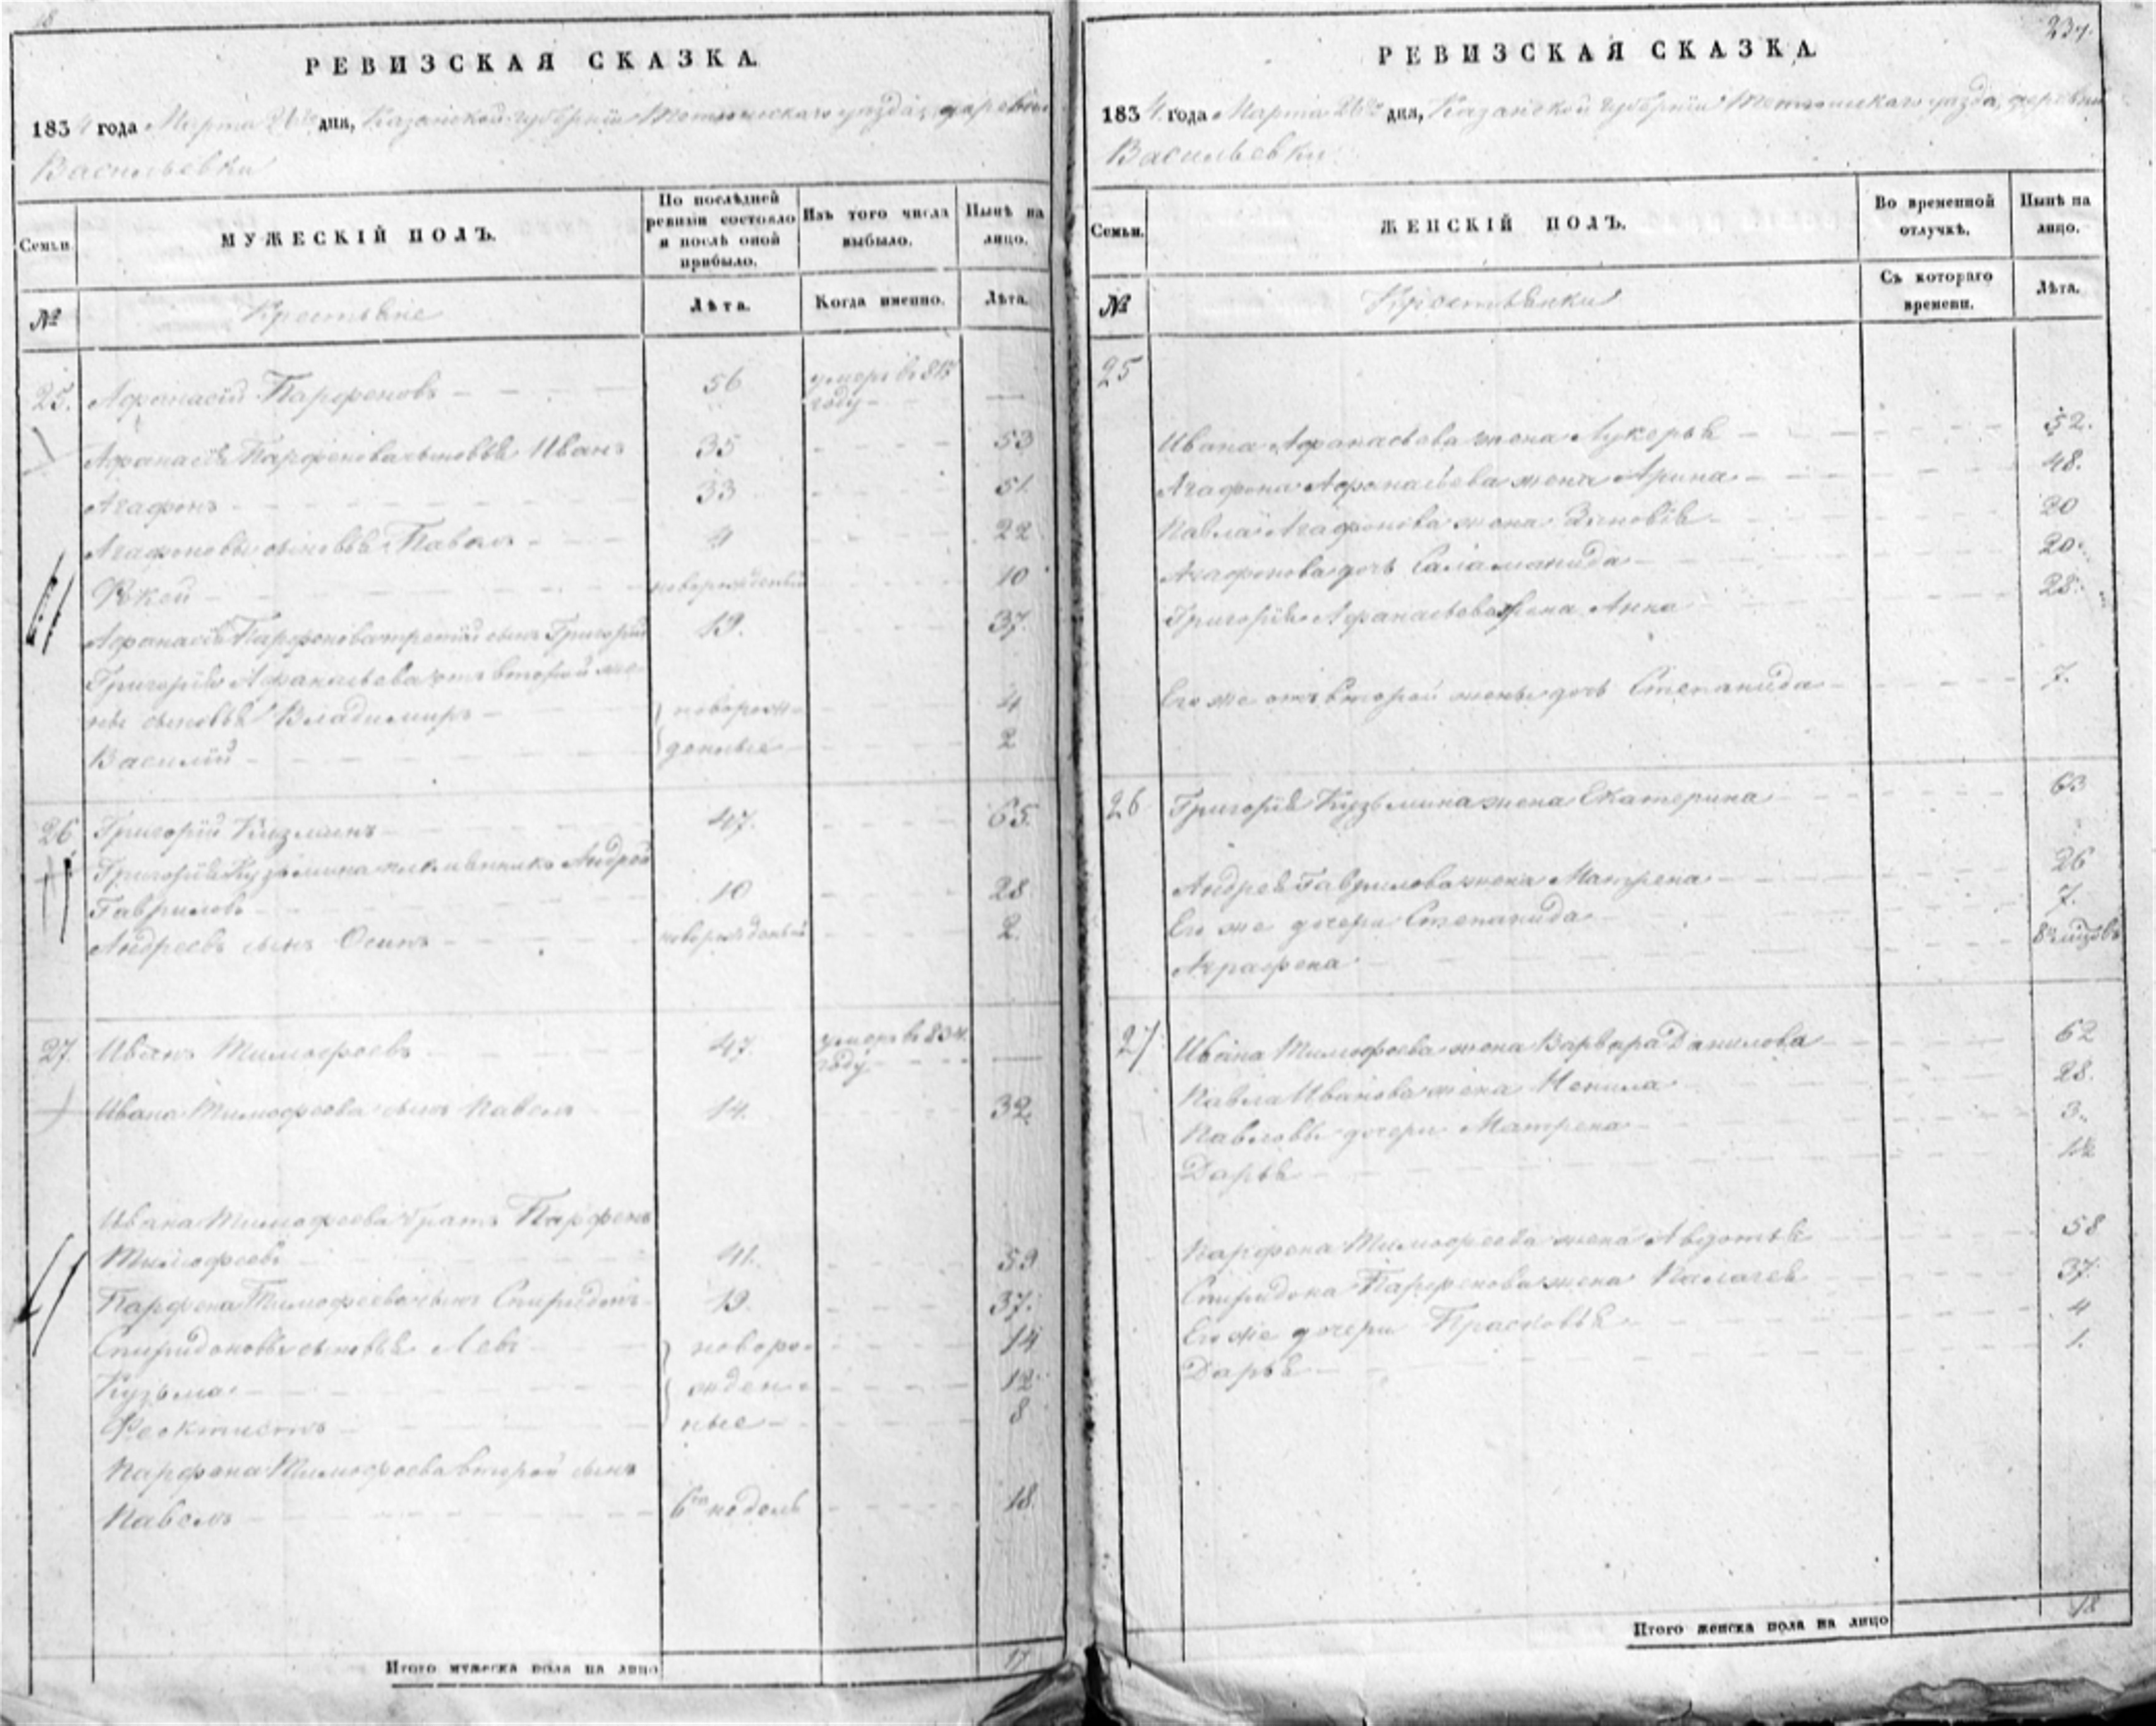 РЕВИЗСКАЯ СКАЗКА.
1834 года Марта 26го дня, Казанской губернии Тетюшскаго уезда, деревни
Васильевки
Семьи.
МУЖЕСКІЙ ПОЛЪ.
По послѣдней ревизіи состояло и послѣ оной прибыло.
Изъ того числа выбыло.
Нынѣ на лицо.
№
Крестьяне
Лѣта.
Когда именно.
Лѣта.
25. Афанасій Парфеновъ 56 умеръ в 81 году
Афанасія Парфенова сыновья Иванъ 35 53
Агафонъ 33 51
Агафоновы сыновья Павелъ 4 22
Фокей новорожденный 10
Афанасія Парфенова третій сынъ Григорій 19. 37.
Григорія Афанасьева отъ второй же-
ны сыновья Владимиръ новорож- 4
Василій денные 2
26. Григорій Кузминъ 47. 65.
Григорія Кузьмина племянникъ Андрей
Гавриловъ 10 28
Андреевъ сынъ Осипъ новорожденный 2.
27. Иванъ Тимофеевъ 47 умеръ в 834 году
Ивана Тимофеева сынъ Павелъ 14. 32
Ивана Тимофеева братъ Парфенъ
Тимофеевъ 41. 59
Парфена Тимофеева сынъ Спиридонъ 19. 37.
Спиридоновы сыновья Левъ новоро- 14
Кузьма жден- 12
Феоктистъ ные 8
Парфена Тимофеева второй сынъ
Павелъ 6ти недель 18.
Итого мужеска пола на лицо 17
237.
РЕВИЗСКАЯ СКАЗКА.
1834 года Марта 26го дня, Казанской губернии Тетюшскаго уезда, деревни
Васильевки
Семьи.
ЖЕНСКІЙ ПОЛЪ.
Во временной отлучкѣ.
Нынѣ на лицо.
№
Крестьянки
Съ котораго времени.
Лѣта.
25
Ивана Афанасьева жена Лукерья 52.
Агафона Афанасьева жена Арина 48.
Павла Агафонова жена Зиновья 20
Агафонова дочь Саламанида 20.
Григорія Афанасьева жена Анна 28.
Его же отъ второй жены дочь Степанида 7.
26 Григорія Кузьмина жена Екатерина 63
Андрея Гаврилова жена Матрена 26
Его же дочери Степанида 7.
Аграфена
27 Ивана Тимофеева жена Варвара Данилова 62
Павла Иванова жена Ненила 28.
Павловы дочери Матрена 3.
Дарья 1½
Парфена Тимофеева жена Авдотья 58
Спиридона Парфенова жена Палагея 37.
Его же дочери Прасковья 4
Дарья 1.
Итого женска пола на лицо 18